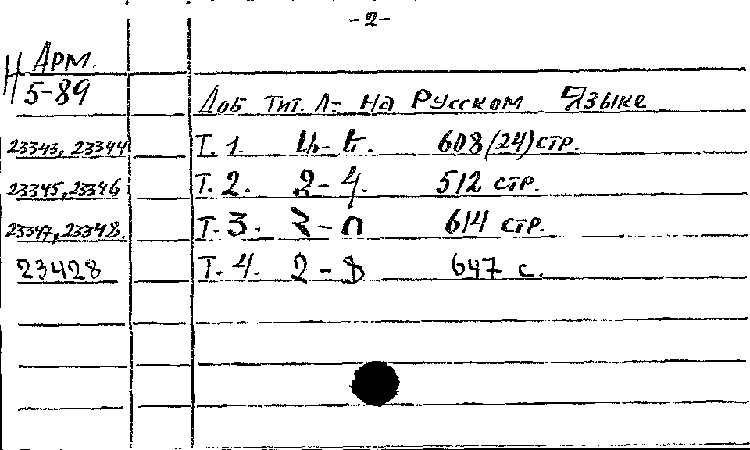 -2-
Н Арм.
5-89
Доб тит. л- на Русском языке
23343, 23344 Т. 1. Ա-Ե. 608 (24) стр.
23345, 23346 Т. 2. Զ-Կ. 512 стр.
23347, 23348. Т. 3. Հ-Ո 614 стр.
23428 Т. 4. Չ-Ֆ 647 с.